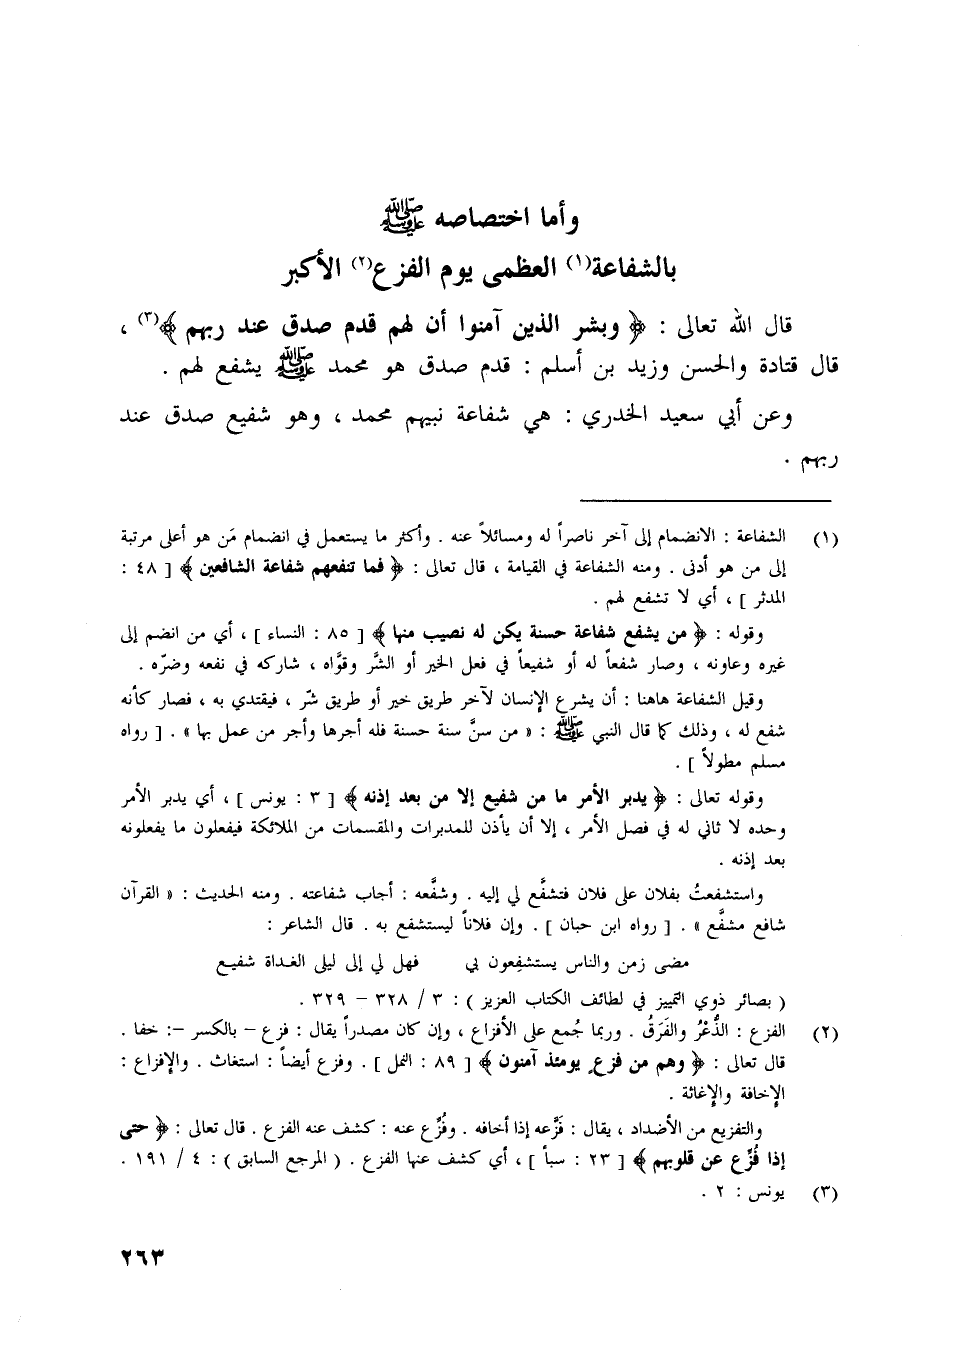 وأما اختصاصه ﷺ
بالشفاعة(١) العظمى يوم الفزع(٢) الأكبر
قال الله تعالى : ﴿ وبشر الذين آمنوا أن لهم قدم صدق عند ربهم ﴾(٣) ،
قال قتادة والحسن وزيد بن أسلم : قدم صدق هو محمد ﷺ يشفع لهم .
وعن أبي سعيد الخدري : هي شفاعة نبيهم محمد ، وهو شفيع صدق عند
ربهم .
(١) الشفاعة : الانضمام إلى آخر ناصراً له ومسائلاً عنه . وأكثر ما يستعمل في انضمام مَن هو أعلى مرتبة
إلى من هو أدنى . ومنه الشفاعة في القيامة ، قال تعالى : ﴿ فما تنفعهم شفاعة الشافعين ﴾ [ ٤٨ :
المدثر ] ، أي لا تشفع لهم .
وقوله : ﴿ من يشفع شفاعة حسنة يكن له نصيب منها ﴾ [ ٨٥ : النساء ] ، أي من انضم إلى
غيره وعاونه ، وصار شفعاً له أو شفيعاً في فعل الخير أو الشَّر وقوَّاه ، شاركه في نفعه وضرّه .
وقيل الشفاعة هاهنا : أن يشرع الإنسان لآخر طريق خير أو طريق شّر ، فيقتدي به ، فصار كأنه
شفع له ، وذلك كما قال النبي ﷺ : « من سنَّ سنة حسنة فله أجرها وأجر من عمل بها » . [ رواه
مسلم مطولاً ] .
وقوله تعالى : ﴿ يدبر الأمر ما من شفيع إلا من بعد إذنه ﴾ [ ٣ : يونس ] ، أي يدبر الأمر
وحده لا ثاني له في فصل الأمر ، إلا أن يأذن للمدبرات والمقسمات من الملائكة فيفعلون ما يفعلونه
بعد إذنه .
واستشفعتُ بفلان على فلان فتشفَّع لي إليه . وشفَّعه : أجاب شفاعته . ومنه الحديث : « القرآن
شافع مشفَّع » . [ رواه ابن حبان ] . وإن فلاناً ليستشفع به . قال الشاعر :
مضى زمن والناس يستشفِعون بي فهل لي إلى ليلى الغداة شفيع
( بصائر ذوي التمييز في لطائف الكتاب العزيز ) : ٣ / ٣٢٨ – ٣٢٩ .
(٢) الفزع : الذُّعْرُ والفَرَقُ . وربما جُمع على الأفزاع ، وإن كان مصدراً يقال : فزع – بالكسر –: خفا .
قال تعالى : ﴿ وهم من فزع يومئذ آمنون ﴾ [ ٨٩ : النمل ] . وفزع أيضاً : استغاث . والإفزاع :
الإخافة والإغاثة .
والتفزيع من الأضداد ، يقال : فَزَّعه إذا أخافه . وفُزِّع عنه : كشف عنه الفزع . قال تعالى : ﴿ حتى
إذا فُزِّع عن قلوبهم ﴾ [ ٢٣ : سبأ ] ، أي كشف عنها الفزع . ( المرجع السابق ) : ٤ / ١٩١ .
(٣) يونس : ٢ .
٢٦٣